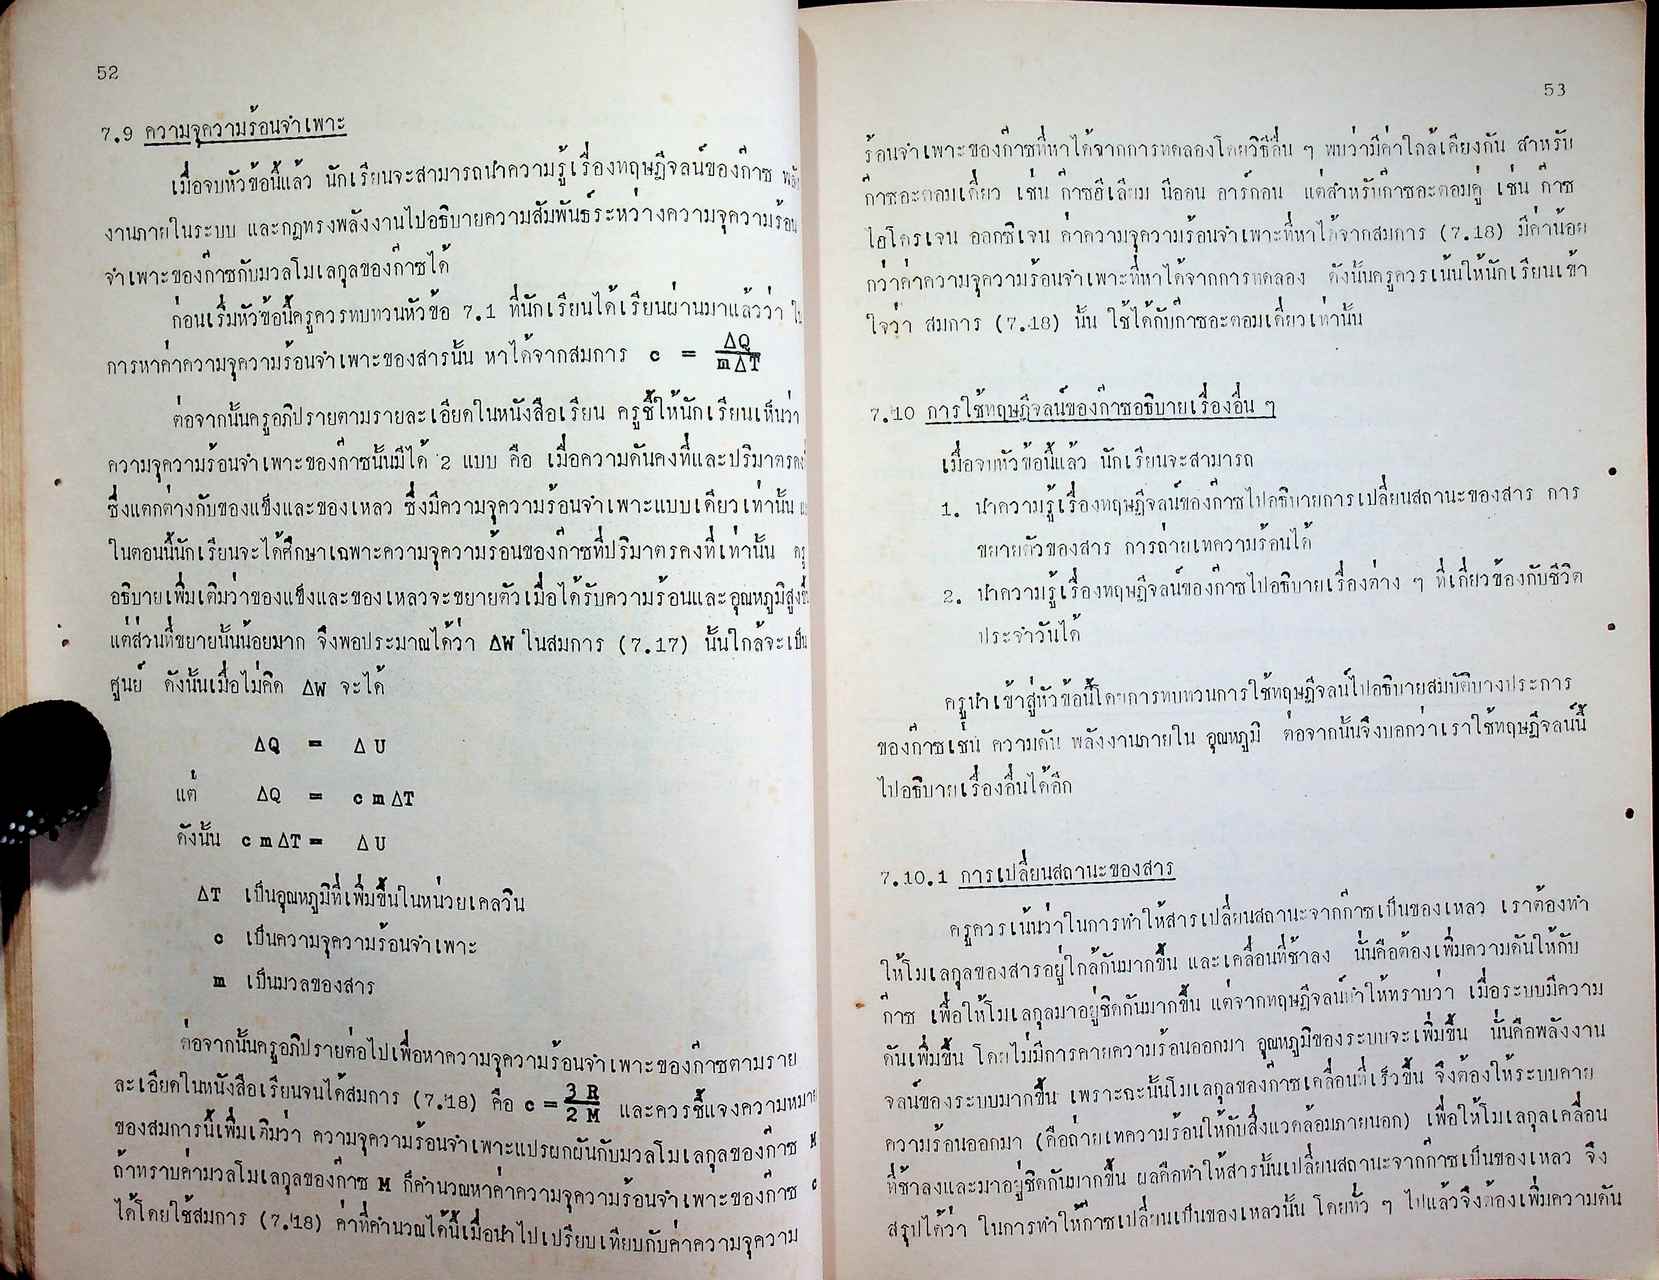 52
7.9 ความจุความร้อนจำเพาะ
เมื่อจบหัวข้อนี้แล้ว นักเรียนจะสามารถนำความรู้เรื่องทฤษฎีจลน์ของก๊าซ พลัง
งานภายในระบบ และกฎทรงพลังงานไปอธิบายความสัมพันธ์ระหว่างความจุความร้อน
จำเพาะของก๊าซกับมวลโมเลกุลของก๊าซได้
ก่อนเริ่มหัวข้อนี้ครูควรทบทวนหัวข้อ 7.1 ที่นักเรียนได้เรียนผ่านมาแล้วว่า ใน
การหาค่าความจุความร้อนจำเพาะของสารนั้น หาได้จากสมการ c = ΔQ / mΔT
ต่อจากนั้นครูอภิปรายตามรายละเอียดในหนังสือเรียน ครูชี้ให้นักเรียนเห็นว่า
ความจุความร้อนจำเพาะของก๊าซนั้นมีได้ 2 แบบ คือ เมื่อความดันคงที่และปริมาตรคงที่
ซึ่งแตกต่างกับของแข็งและของเหลว ซึ่งมีความจุความร้อนจำเพาะแบบเดียวเท่านั้น
ในตอนนี้นักเรียนจะได้ศึกษาเฉพาะความจุความร้อนของก๊าซที่ปริมาตรคงที่เท่านั้น ครู
อธิบายเพิ่มเติมว่าของแข็งและของเหลวจะขยายตัวเมื่อได้รับความร้อนและอุณหภูมิสูงขึ้น
แต่ส่วนที่ขยายนั้นน้อยมาก จึงพอประมาณได้ว่า ΔW ในสมการ (7.17) นั้นใกล้จะเป็น
ศูนย์ ดังนั้นเมื่อไม่คิด ΔW จะได้
ΔQ = ΔU
แต่ ΔQ = c m ΔT
ดังนั้น c m ΔT = ΔU
ΔT เป็นอุณหภูมิที่เพิ่มขึ้นในหน่วยเคลวิน
c เป็นความจุความร้อนจำเพาะ
m เป็นมวลของสาร
ต่อจากนั้นครูอภิปรายต่อไปเพื่อหาความจุความร้อนจำเพาะของก๊าซตามราย
ละเอียดในหนังสือเรียนจนได้สมการ (7.18) คือ c = 3 R / 2 M และควรชี้แจงความหมาย
ของสมการนี้เพิ่มเติมว่า ความจุความร้อนจำเพาะแปรผกผันกับมวลโมเลกุลของก๊าซ M
ถ้าทราบค่ามวลโมเลกุลของก๊าซ M ก็คำนวณหาค่าความจุความร้อนจำเพาะของก๊าซ c
ได้โดยใช้สมการ (7.18) ค่าที่คำนวณได้นี้เมื่อนำไปเปรียบเทียบกับค่าความจุความ
53
ร้อนจำเพาะของก๊าซที่หาได้จากการทดลองโดยวิธีอื่น ๆ พบว่ามีค่าใกล้เคียงกัน สำหรับ
ก๊าซอะตอมเดี่ยว เช่น ก๊าซฮีเลียม นีออน อาร์กอน แต่สำหรับก๊าซอะตอมคู่ เช่น ก๊าซ
ไฮโดรเจน ออกซิเจน ค่าความจุความร้อนจำเพาะที่หาได้จากสมการ (7.18) มีค่าน้อย
กว่าค่าความจุความร้อนจำเพาะที่หาได้จากการทดลอง ดังนั้นครูควรเน้นให้นักเรียนเข้า
ใจว่า สมการ (7.18) นั้น ใช้ได้กับก๊าซอะตอมเดี่ยวเท่านั้น
7.10 การใช้ทฤษฎีจลน์ของก๊าซอธิบายเรื่องอื่น ๆ
เมื่อจบหัวข้อนี้แล้ว นักเรียนจะสามารถ
1. นำความรู้เรื่องทฤษฎีจลน์ของก๊าซไปอธิบายการเปลี่ยนสถานะของสาร การ
ขยายตัวของสาร การถ่ายเทความร้อนได้
2. นำความรู้เรื่องทฤษฎีจลน์ของก๊าซไปอธิบายเรื่องต่าง ๆ ที่เกี่ยวข้องกับชีวิต
ประจำวันได้
ครูนำเข้าสู่หัวข้อนี้โดยการทบทวนการใช้ทฤษฎีจลน์ไปอธิบายสมบัติบางประการ
ของก๊าซเช่น ความดัน พลังงานภายใน อุณหภูมิ ต่อจากนั้นจึงบอกว่าเราใช้ทฤษฎีจลน์นี้
ไปอธิบายเรื่องอื่นได้อีก
7.10.1 การเปลี่ยนสถานะของสาร
ครูควรเน้นว่าในการทำให้สารเปลี่ยนสถานะจากก๊าซเป็นของเหลว เราต้องทำ
ให้โมเลกุลของสารอยู่ใกล้กันมากขึ้น และเคลื่อนที่ช้าลง นั่นคือต้องเพิ่มความดันให้กับ
ก๊าซ เพื่อให้โมเลกุลมาอยู่ชิดกันมากขึ้น แต่จากทฤษฎีจลน์ทำให้ทราบว่า เมื่อระบบมีความ
ดันเพิ่มขึ้น โดยไม่มีการคายความร้อนออกมา อุณหภูมิของระบบจะเพิ่มขึ้น นั่นคือพลังงาน
จลน์ของระบบมากขึ้น เพราะฉะนั้นโมเลกุลของก๊าซเคลื่อนที่เร็วขึ้น จึงต้องให้ระบบคาย
ความร้อนออกมา (คือถ่ายเทความร้อนให้กับสิ่งแวดล้อมภายนอก) เพื่อให้โมเลกุลเคลื่อน
ที่ช้าลงและมาอยู่ชิดกันมากขึ้น ผลคือทำให้สารนั้นเปลี่ยนสถานะจากก๊าซเป็นของเหลว จึง
สรุปได้ว่า ในการทำให้ก๊าซเปลี่ยนเป็นของเหลวนั้น โดยทั่ว ๆ ไปแล้วจึงต้องเพิ่มความดัน